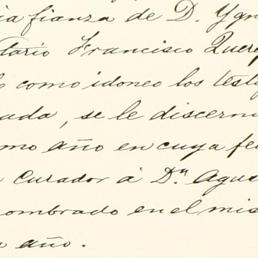 ia fianza de D. Ygn
tario Francisco Quer
como idoneo los testi
ada, se le discerni
mo año en cuya fe
Curador á Dⁿ Agus
ombrado en el mis
año.